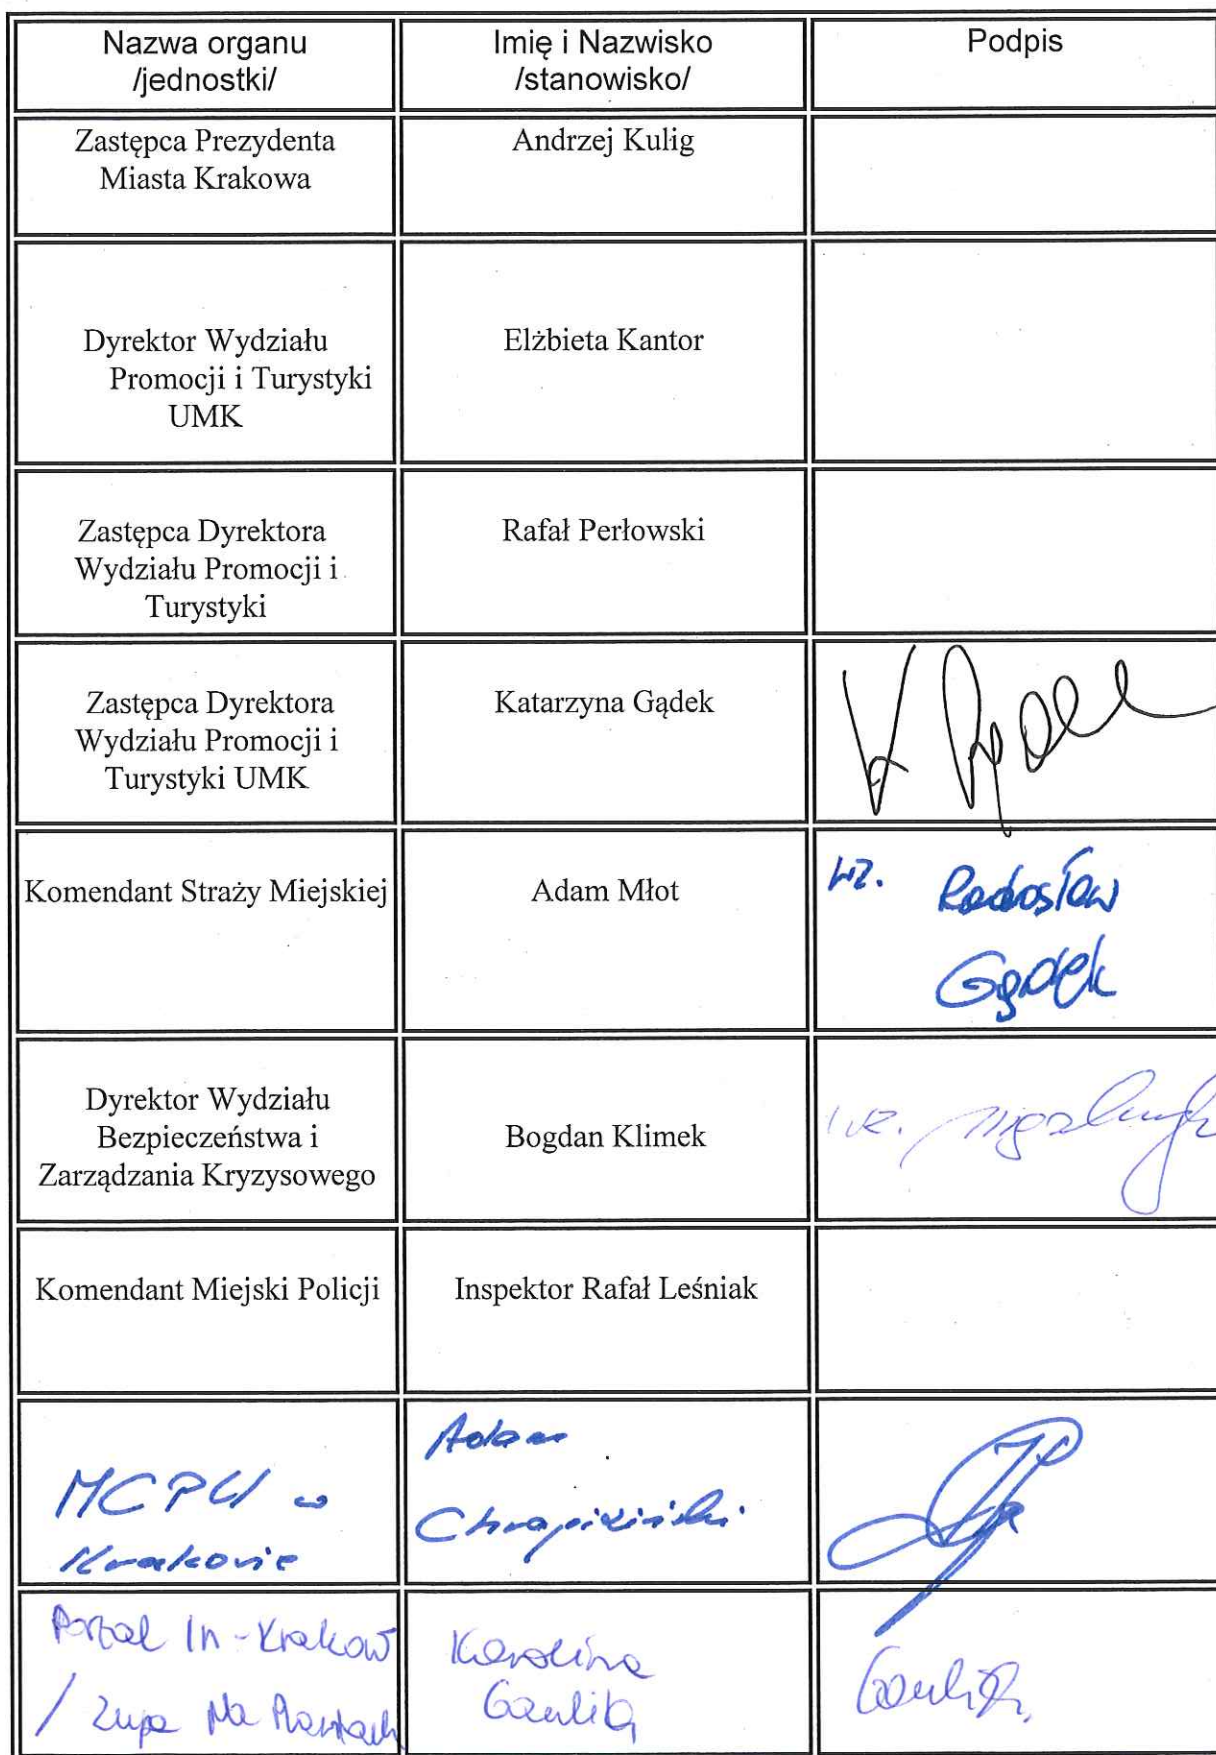 Nazwa organu
/jednostki/
Imię i Nazwisko
/stanowisko/
Podpis
Zastępca Prezydenta
Miasta Krakowa
Andrzej Kulig
Dyrektor Wydziału
Promocji i Turystyki
UMK
Elżbieta Kantor
Zastępca Dyrektora
Wydziału Promocji i
Turystyki
Rafał Perłowski
Zastępca Dyrektora
Wydziału Promocji i
Turystyki UMK
Katarzyna Gądek
Komendant Straży Miejskiej
Adam Młot
wz. Radosław
Gądek
Dyrektor Wydziału
Bezpieczeństwa i
Zarządzania Kryzysowego
Bogdan Klimek
wz.
Komendant Miejski Policji
Inspektor Rafał Leśniak
MCPU w
Krakowie
Adam
Portal In-Krakow
/ Zupa Na Plantach
Karolina